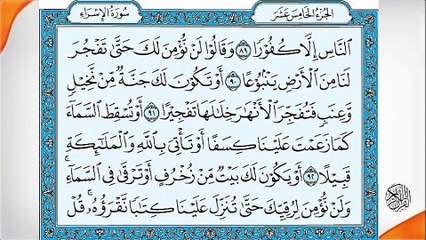 الجزء الخامس عشر سورة الإسراء
النَّاسِ إِلَّا كُفُورًا ٨٩ وَقَالُوا لَن نُّؤْمِنَ لَكَ حَتَّىٰ تَفْجُرَ
لَنَا مِنَ الْأَرْضِ يَنبُوعًا ٩٠ أَوْ تَكُونَ لَكَ جَنَّةٌ مِّن نَّخِيلٍ
وَعِنَبٍ فَتُفَجِّرَ الْأَنْهَارَ خِلَالَهَا تَفْجِيرًا ٩١ أَوْ تُسْقِطَ السَّمَاءَ
كَمَا زَعَمْتَ عَلَيْنَا كِسَفًا أَوْ تَأْتِيَ بِاللَّهِ وَالْمَلَائِكَةِ
قَبِيلًا ٩٢ أَوْ يَكُونَ لَكَ بَيْتٌ مِّن زُخْرُفٍ أَوْ تَرْقَىٰ فِي السَّمَاءِ
وَلَن نُّؤْمِنَ لِرُقِيِّكَ حَتَّىٰ تُنَزِّلَ عَلَيْنَا كِتَابًا نَّقْرَؤُهُ ۗ قُلْ